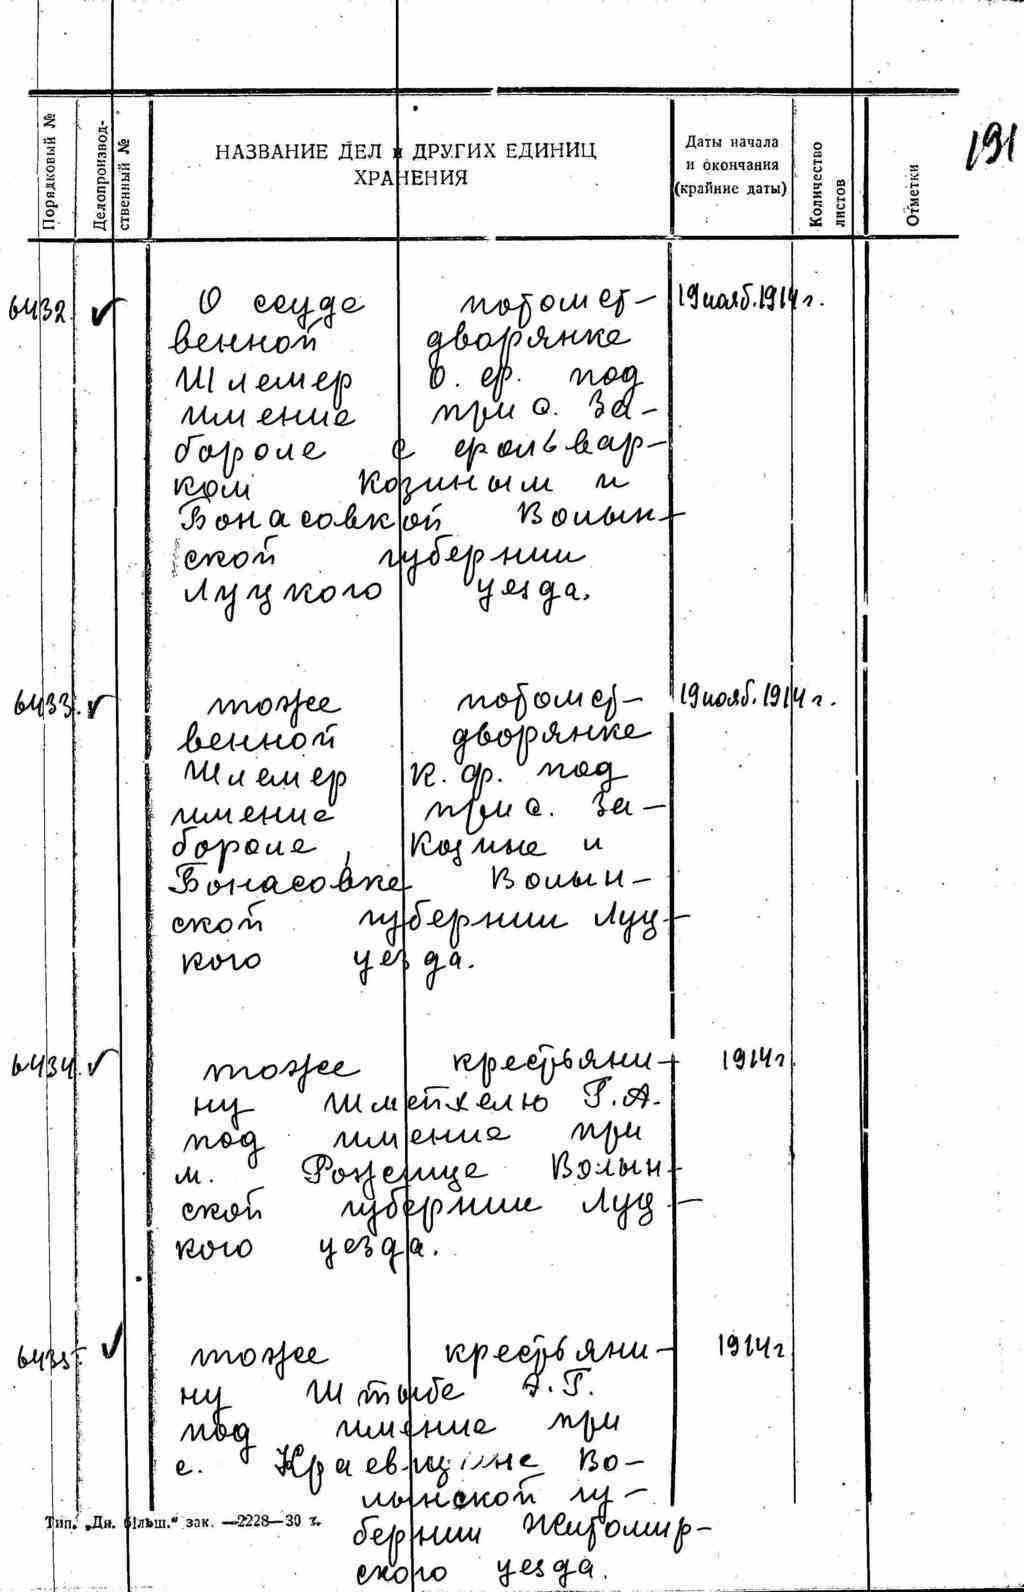 191
Порядковый №
Делопроизвод-
ственный №
НАЗВАНИЕ ДЕЛ и ДРУГИХ ЕДИНИЦ
ХРАНЕНИЯ
Даты начала
и окончания
(крайние даты)
Количество
листов
Отметки
6432. ✓ О ссуде потомст- 19 нояб. 1914 г.
венной дворянке
Шлемер О. ф. под
имение при с. За-
бороле с фольвар-
ком Козиным и
Бонасовкой Волын-
ской губернии
Луцкого уезда.
6433. ✓ тоже потомст- 19 нояб. 1914 г.
венной дворянке
Шлемер К. ф. под
имение при с. За-
бороле, Козине и
Бонасовке Волын-
ской губернии Луц-
кого уезда.
6434. ✓ тоже крестьяни- 1914 г
ну Шмейхелю Г. А.
под имение при
м. Рожище Волын-
ской губернии Луц-
кого уезда.
6435 ✓ тоже крестьяни- 1914 г
ну Штыбе А. Г.
под имение при
с. Краевщине Во-
лынской гу-
бернии Житомир-
ского уезда.
Тип. „Дн. більш.“ зак. —2228—30 т.